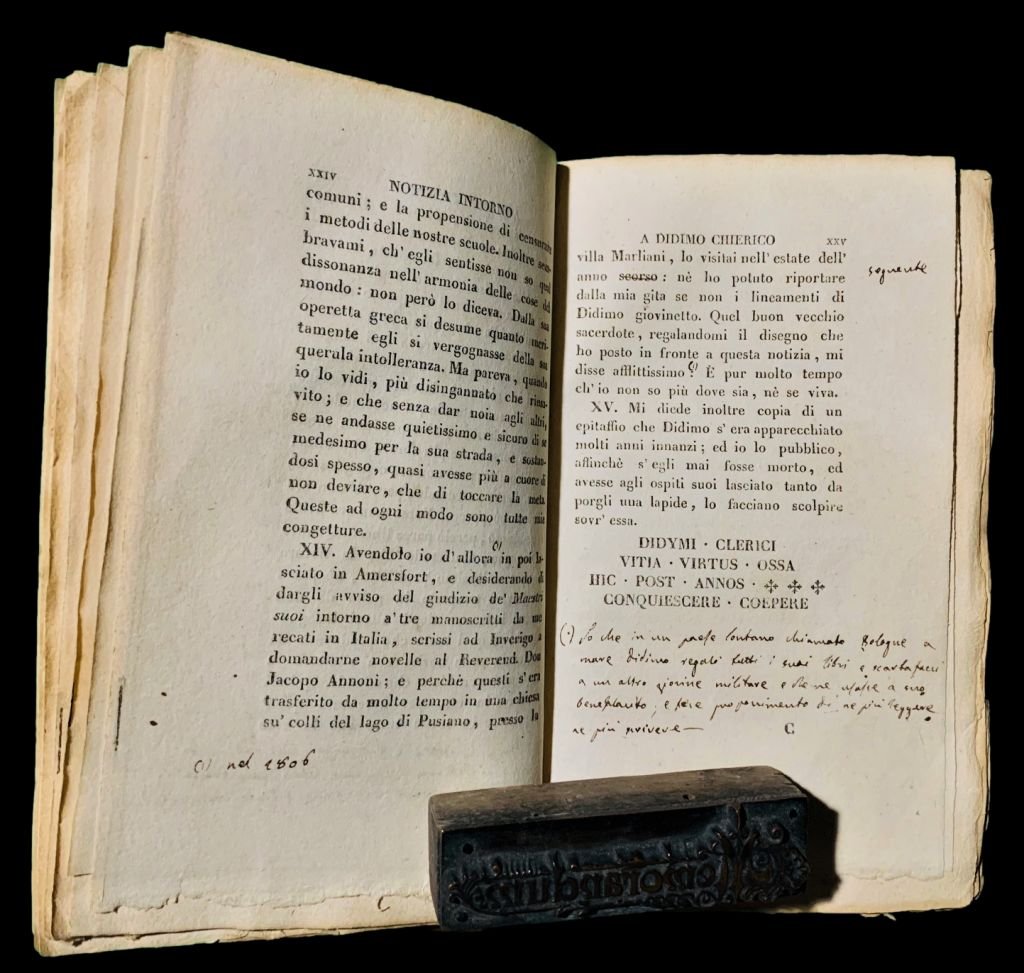 XXIV NOTIZIA INTORNO
comuni ; e la propensione di censurare
i metodi delle nostre scuole. Inoltre sem-
bravami , ch' egli sentisse non so qual
dissonanza nell' armonia delle cose del
mondo : non però lo diceva. Dalla sua
operetta greca si desume quanto meri-
tamente egli si vergognasse della sua
querula intolleranza. Ma pareva , quando
io lo vidi , più disingannato che rinsa-
vito ; e che senza dar noia agli altri,
se ne andasse quietissimo e sicuro di se
medesimo per la sua strada , e sostan-
dosi spesso, quasi avesse più a cuore di
non deviare, che di toccare la meta.
Queste ad ogni modo sono tutte mie
congetture.
XIV. Avendolo io d'allora (1) in poi la-
sciato in Amersfort , e desiderando di
dargli avviso del giudizio de' Maestri
suoi intorno a'tre manoscritti da me
recati in Italia , scrissi ad Inverigo a
domandarne novelle al Reverend. Don
Jacopo Annoni ; e perchè questi s' era
trasferito da molto tempo in una chiesa
su' colli del lago di Pusiano, presso la
(1) nel 1806
A DIDIMO CHIERICO XXV
villa Marliani , lo visitai nell' estate dell'
anno scorso : nè ho potuto riportare seguente
dalla mia gita se non i lineamenti di
Didimo giovinetto. Quel buon vecchio
sacerdote , regalandomi il disegno che
ho posto in fronte a questa notizia , mi
disse afflittissimo : (1) È pur molto tempo
ch' io non so più dove sia , nè se viva.
XV. Mi diede inoltre copia di un
epitaffio che Didimo s' era apparecchiato
molti anni innanzi ; ed io lo pubblico,
affinchè s' egli mai fosse morto, ed
avesse agli ospiti suoi lasciato tanto da
porgli una lapide, lo facciano scolpire
sovr' essa.
DIDYMI · CLERICI
VITIA · VIRTUS · OSSA
HIC · POST · ANNOS · ✣ ✣ ✣
CONQUIESCERE · COEPERE
(1) So che in un paese lontano chiamato Bologne a
mare Didimo regalò tutti i suoi libri e scartafacci
a un altro giovine militare e che ne usasse a suo
beneplacito ; e fece proponimento di ne più leggere
ne più scrivere —
C
Memorandum